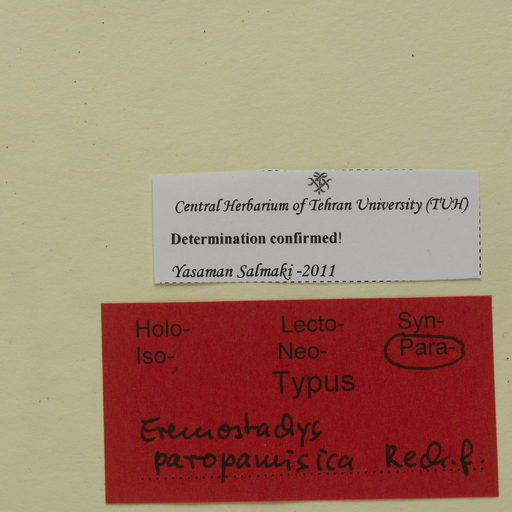 Central Herbarium of Tehran University (TUH)
Determination confirmed!
Yasaman Salmaki -2011
Holo- Lecto- Syn-
Iso- Neo- Para-
Typus
Eremostachys
paropamisica Rech.f.